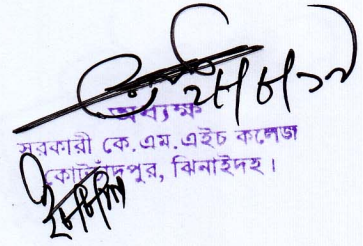 ২৮/৮/১৭
অধ্যক্ষ
সরকারী কে.এম.এইচ কলেজ
কোটচাঁদপুর, ঝিনাইদহ।